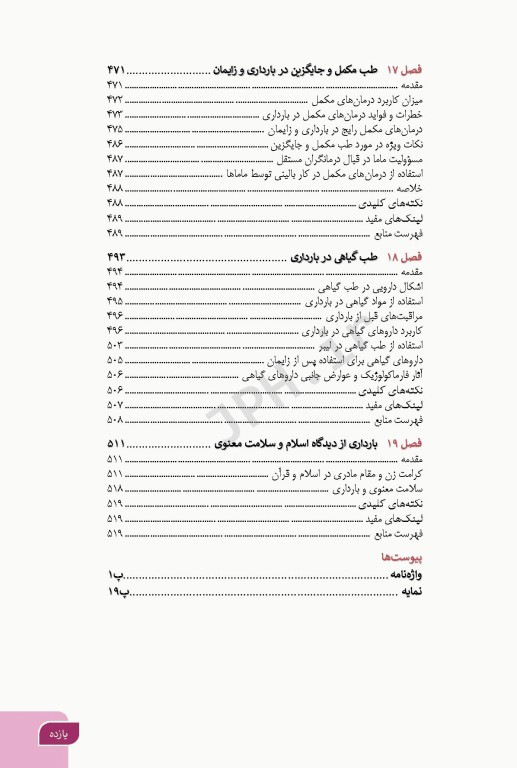 فصل ۱۷ طب مکمل و جایگزین در بارداری و زایمان ........................... ۴۷۱
مقدمه ........................... ۴۷۱
میزان کاربرد درمان‌های مکمل ........................... ۴۷۲
خطرات و فواید درمان‌های مکمل در بارداری ........................... ۴۷۳
درمان‌های مکمل رایج در بارداری و زایمان ........................... ۴۷۵
نکات ویژه در مورد طب مکمل و جایگزین ........................... ۴۸۶
مسؤولیت ماما در قبال درمانگران مستقل ........................... ۴۸۷
استفاده از درمان‌های مکمل در کار بالینی توسط ماماها ........................... ۴۸۷
خلاصه ........................... ۴۸۸
نکته‌های کلیدی ........................... ۴۸۸
لینک‌های مفید ........................... ۴۸۹
فهرست منابع ........................... ۴۸۹
فصل ۱۸ طب گیاهی در بارداری ........................... ۴۹۳
مقدمه ........................... ۴۹۴
اشکال دارویی در طب گیاهی ........................... ۴۹۴
استفاده از مواد گیاهی در بارداری ........................... ۴۹۵
مراقبت‌های قبل از بارداری ........................... ۴۹۶
کاربرد داروهای گیاهی در بارداری ........................... ۴۹۶
استفاده از طب گیاهی در لیبر ........................... ۵۰۳
داروهای گیاهی برای استفاده پس از زایمان ........................... ۵۰۵
آثار فارماکولوژیک و عوارض جانبی داروهای گیاهی ........................... ۵۰۶
نکته‌های کلیدی ........................... ۵۰۶
لینک‌های مفید ........................... ۵۰۷
فهرست منابع ........................... ۵۰۸
فصل ۱۹ بارداری از دیدگاه اسلام و سلامت معنوی ........................... ۵۱۱
مقدمه ........................... ۵۱۱
کرامت زن و مقام مادری در اسلام و قرآن ........................... ۵۱۱
سلامت معنوی و بارداری ........................... ۵۱۸
نکته‌های کلیدی ........................... ۵۱۹
لینک‌های مفید ........................... ۵۱۹
فهرست منابع ........................... ۵۱۹
پیوست‌ها
واژه‌نامه ........................... پ۱
نمایه ........................... پ۱۹
یازده
JPH.IR